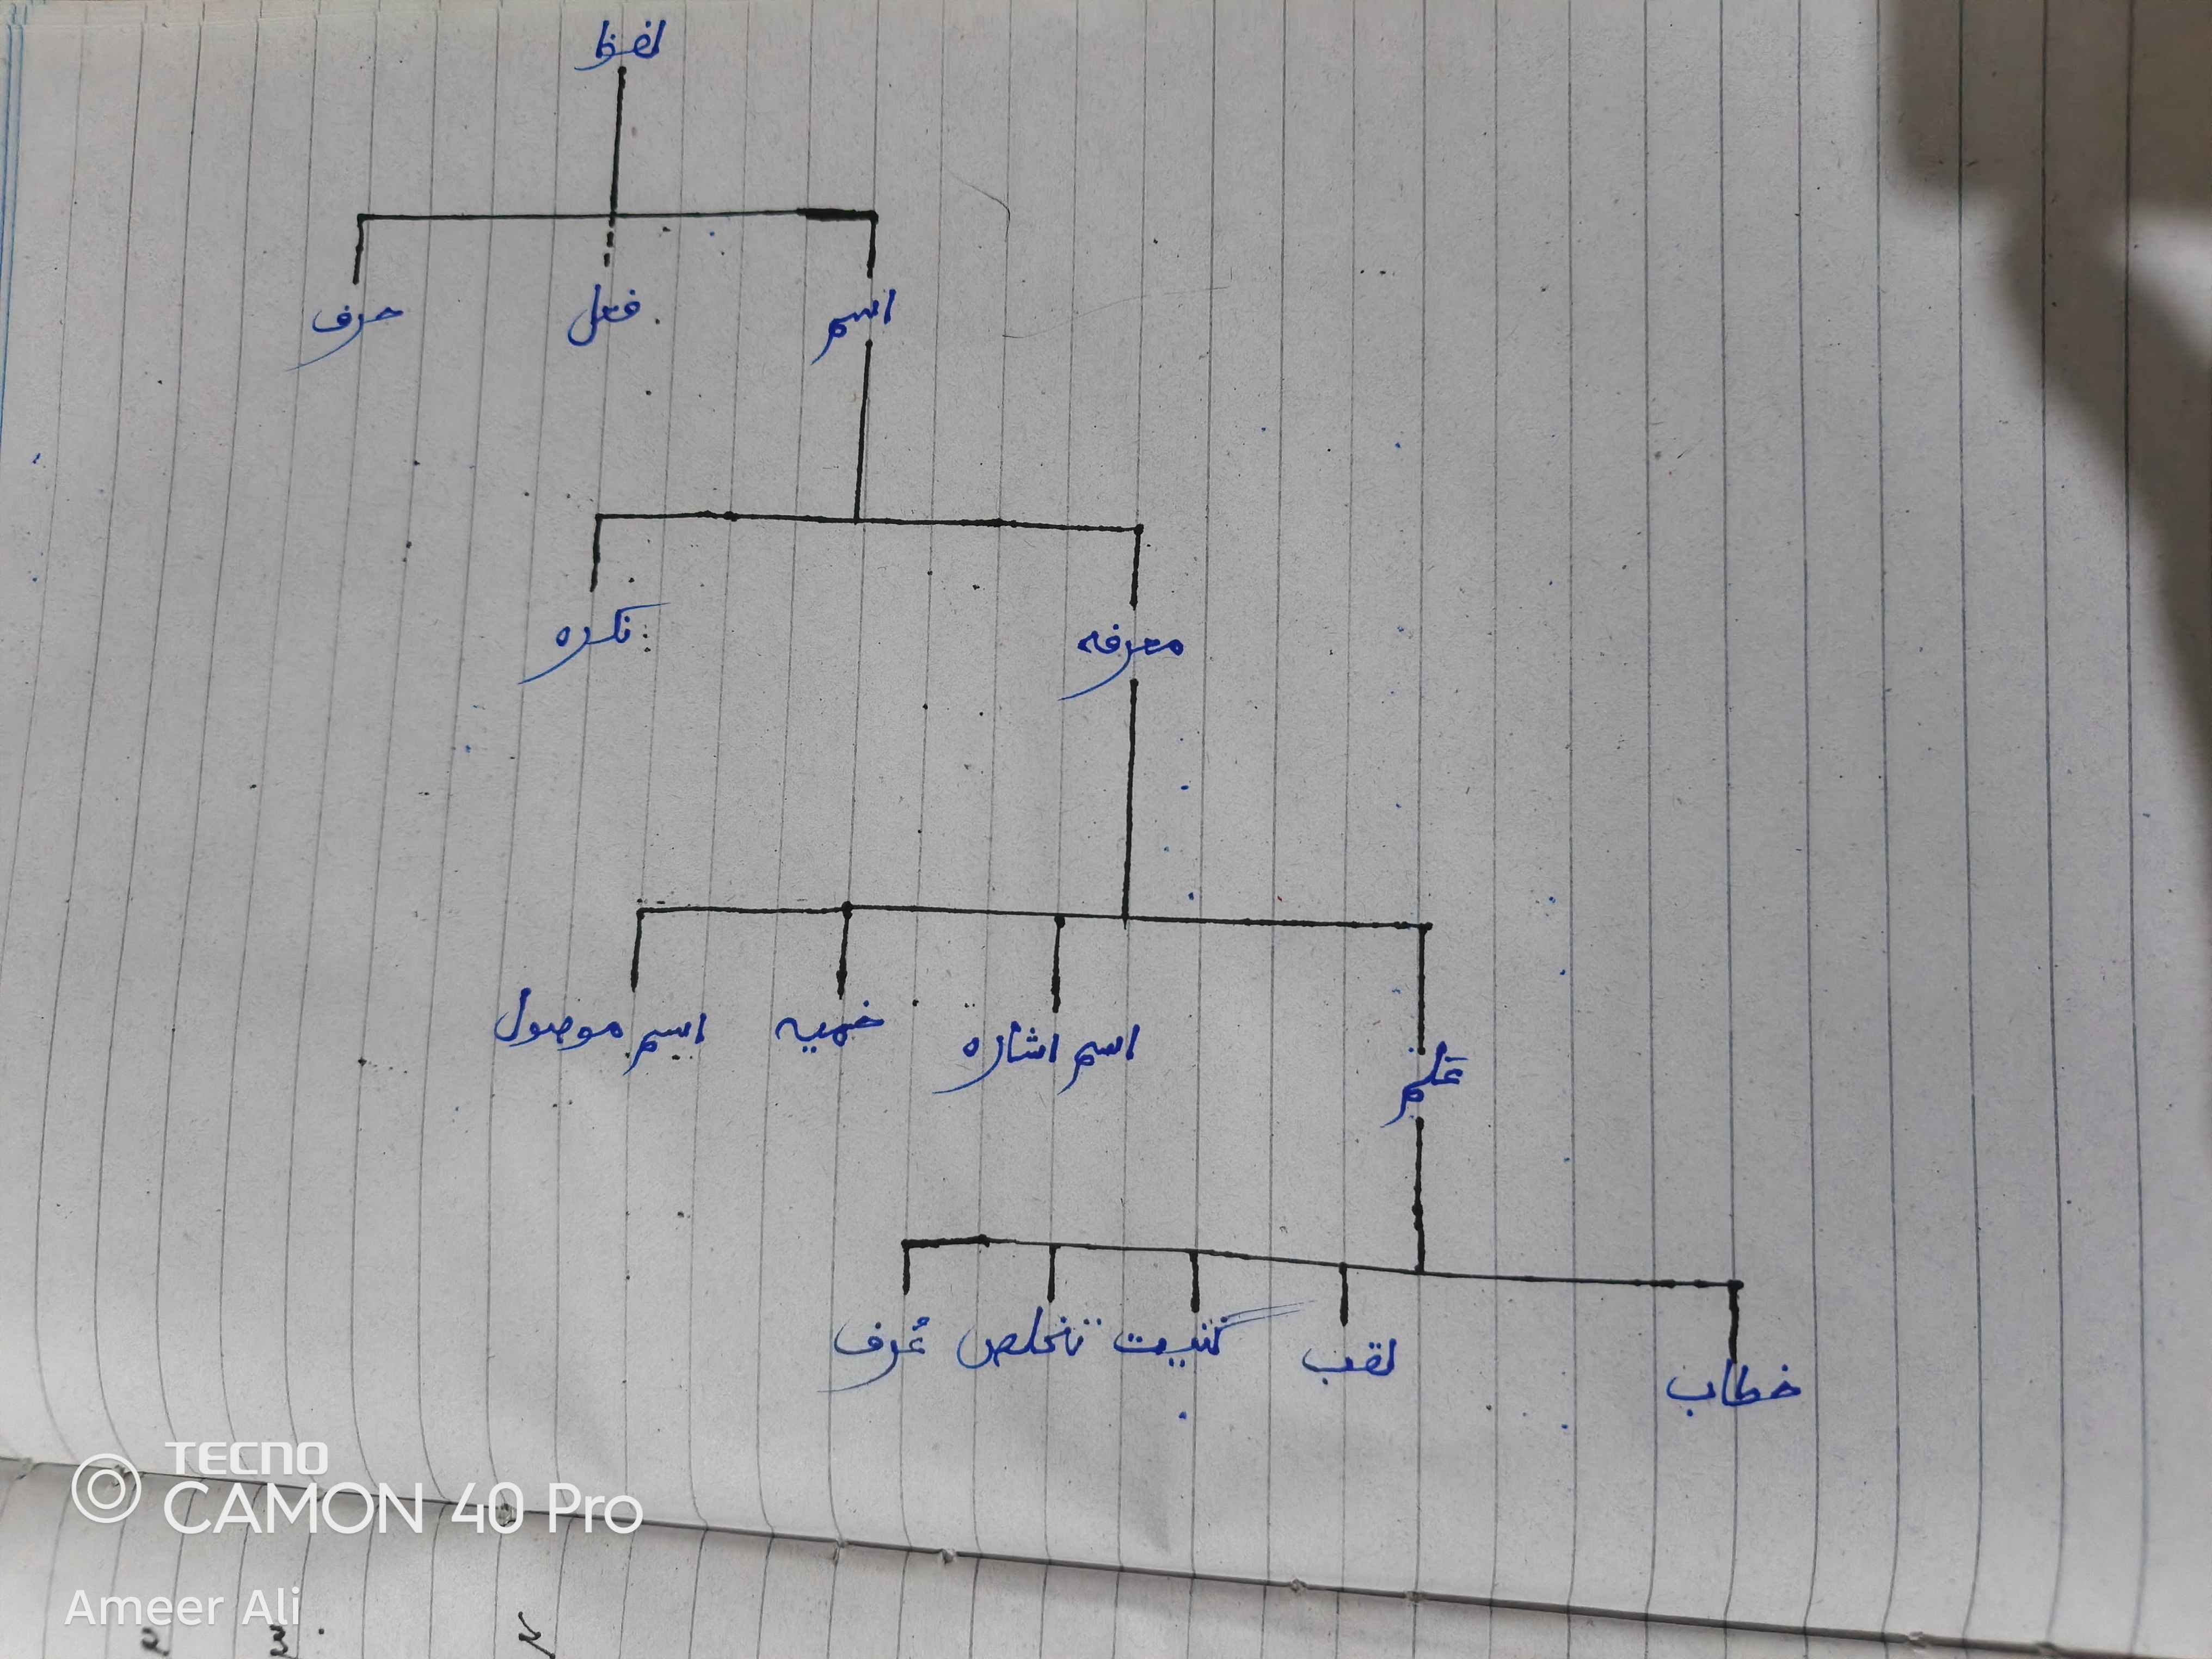 لفظ
اسم فعل حرف
معرفہ نکرہ
علم اسم اشارہ ضمیہ اسم موصول
خطاب لقب کنیت تخلص عُرف
TECNO
CAMON 40 Pro
Ameer Ali